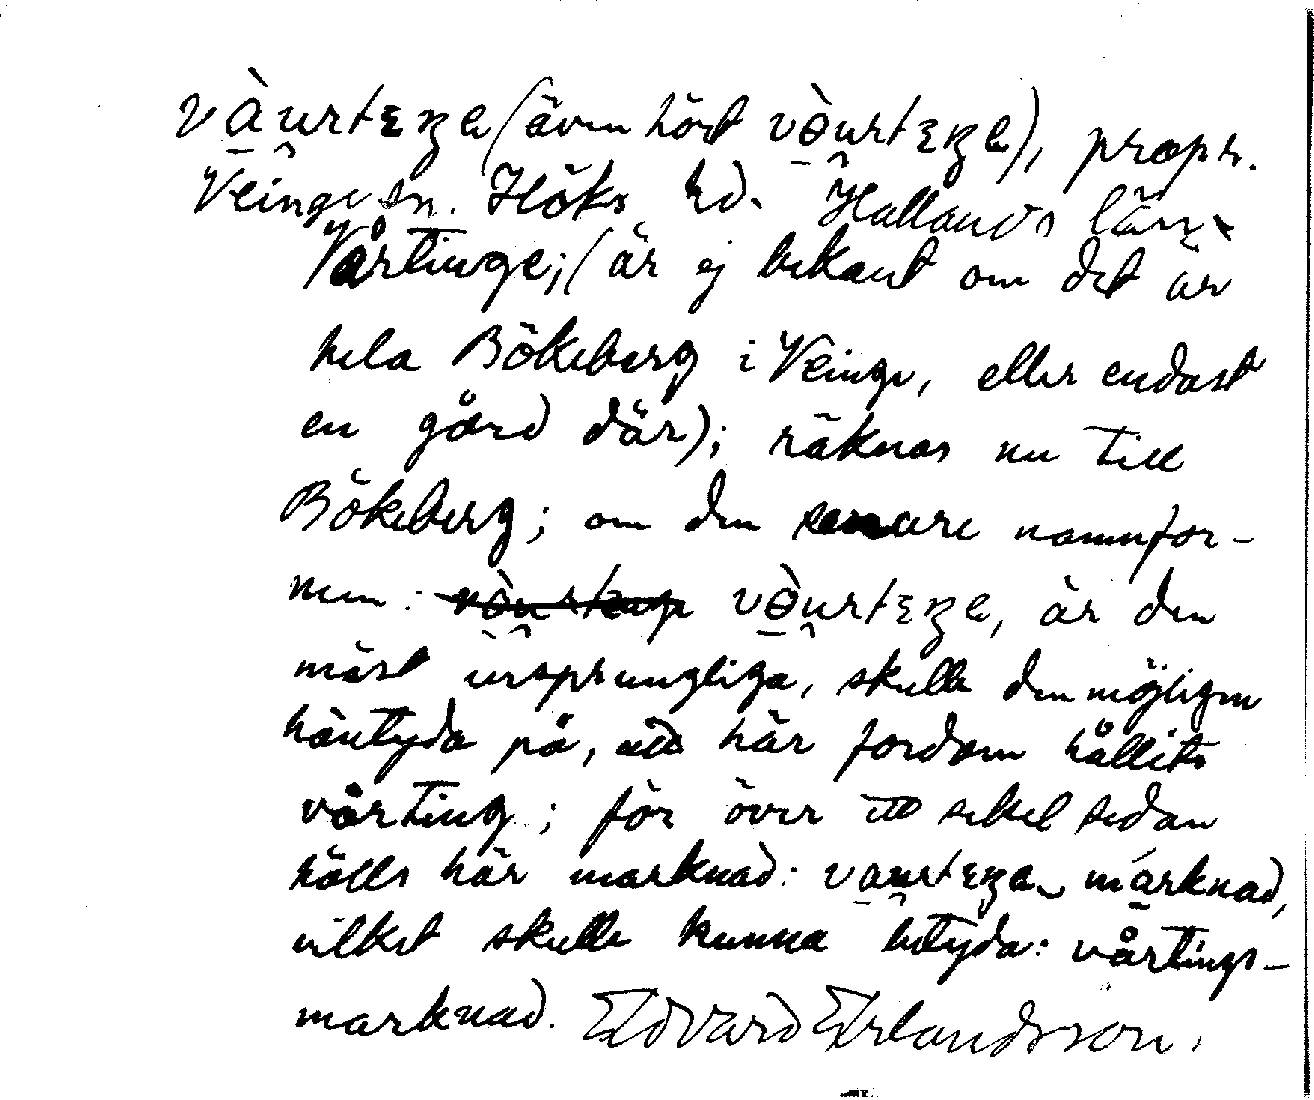 và̠u̯rtɛŋa (även hört vò̠u̯rtɛŋa), propr.
Veinge sn. Höks hd. Hallands län.
Vårtinge; (är ej bekant om det är
hela Bökeberg i Veinge, eller endast
en gård där); räknas nu till
Bökeberg; om den senare namnfor-
men: vò̠u̯rtɛŋa, är den
mäst ursprungliga, skulle den möjligen
häntyda på, att här fordom hållits
vårting; för över ett sekel sedan
hölls här marknad: va̠u̯rtɛŋa marknad,
vilket skulle kunna betyda: vårtings-
marknad. Edvard Erlandsson.